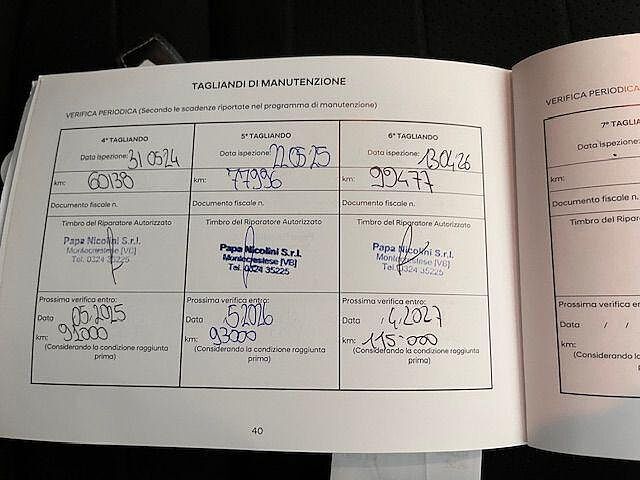 TAGLIANDI DI MANUTENZIONE
VERIFICA PERIODICA (Secondo le scadenze riportate nel programma di manutenzione)
4° TAGLIANDO
Data ispezione: 31 05 24
km: 60138
Documento fiscale n.
Timbro del Riparatore Autorizzato
Papa Nicolini S.r.l.
Montecrestese [VB]
Tel. 0324 35225
Prossima verifica entro:
Data 05.2025
km:
(Considerando la condizione raggiunta
prima)
5° TAGLIANDO
Data ispezione: 22.05.25
km: 77996
Documento fiscale n.
Timbro del Riparatore Autorizzato
Papa Nicolini S.r.l.
Montecrestese [VB]
Tel. 0324 35225
Prossima verifica entro:
Data 5 2026
km: 93000
(Considerando la condizione raggiunta
prima)
6° TAGLIANDO
Data ispezione: 130426
km: 99477
Documento fiscale n.
Timbro del Riparatore Autorizzato
Papa Nicolini S.r.l.
Montecrestese [VB]
Tel. 0324 35225
Prossima verifica entro:
Data 4.2027
km: 115.000
(Considerando la condizione raggiunta
prima)
40
VERIFICA PERIODICA
7° TAGLIA
Data ispezione:
km:
Documento fiscale n.
Timbro del Ripar
Prossima verifica en
Data / /
km:
(Considerando